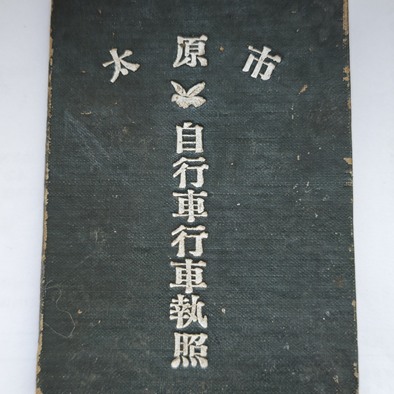 太原市
自行車行車執照